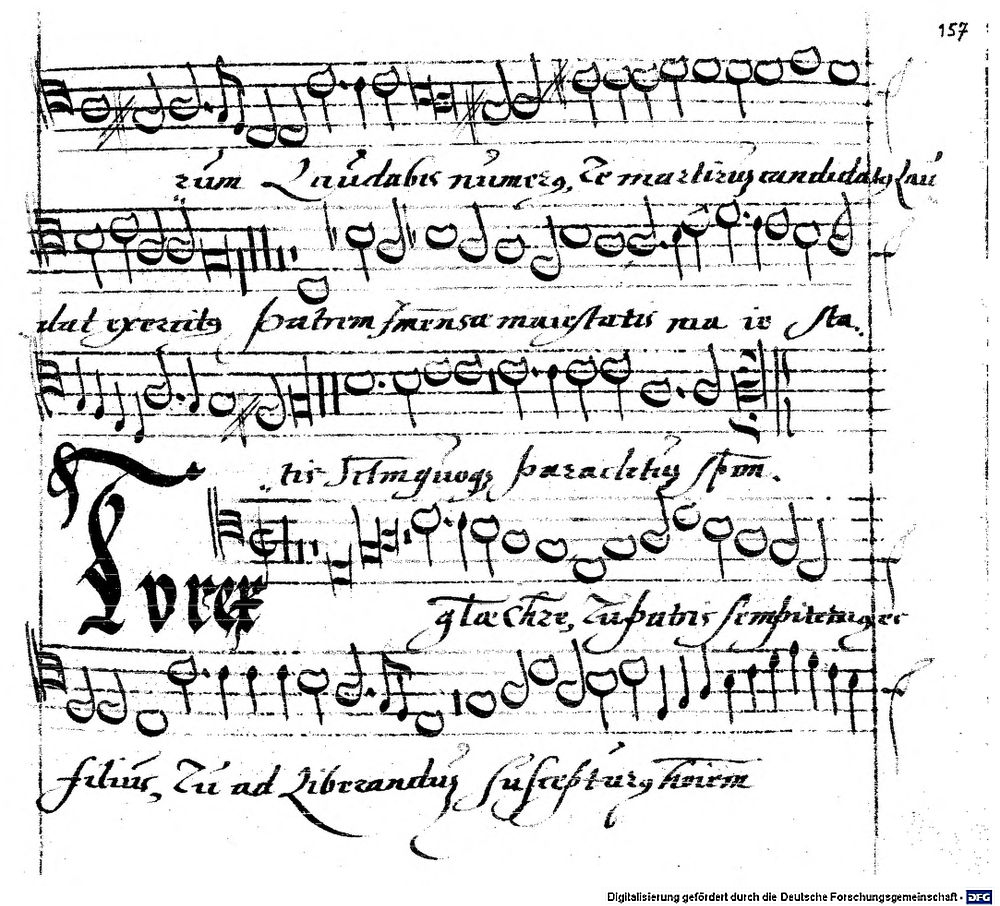 157
rum Laudabis numerꝯ, Te martirum candidatꝯ Lau
dat exercitꝯ patrem Jmensæ maiestatis ma ie sta
tis Sctm quoqꝫ paraclitum spm.
Tu rex
glæ Chre, Tu patris sempiternꝯ es
filius, Tu ad Liberandum suscepturꝯ hoiem
Digitalisierung gefördert durch die Deutsche Forschungsgemeinschaft - DFG